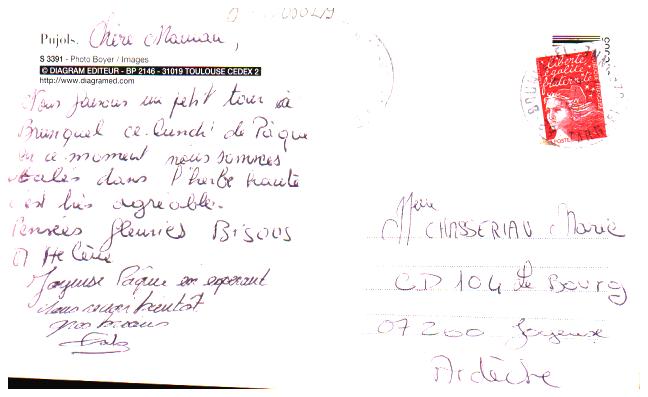 Pujols, Chère Maman,
S 3391 - Photo Boyer / Images
© DIAGRAM EDITEUR - BP 2146 - 31019 TOULOUSE CEDEX 2
http://www.diagramed.com
Nous faisons un petit tour à
Bruniquel ce lundi de Pâque
en ce moment nous sommes
étalés dans l'herbe haute
c'est très agréable.
Pensées fleuries Bisous
Hélène
Joyeuse Pâque en espérant
vous bientôt
nos bisous
Liberté,
égalité,
fraternité
POSTE
Mme
CHASSERIAU Marie
CD 104 Le Bourg
07200 Joyeuse
Ardèche